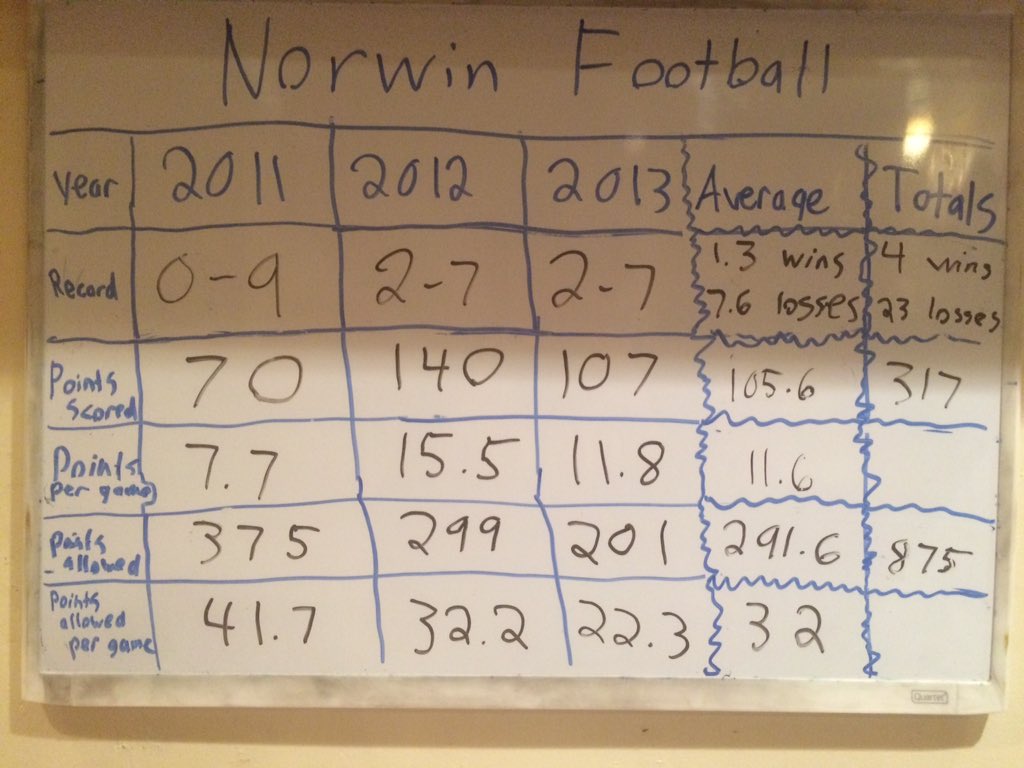 Norwin Football
Year 2011 2012 2013 Average Totals
Record 0-9 2-7 2-7 1.3 wins 4 wins
7.6 losses 23 losses
Points scored 70 140 107 105.6 317
Points per game 7.7 15.5 11.8 11.6
points allowed 375 299 201 291.6 875
points allowed per game 41.7 32.2 22.3 32
Quartet